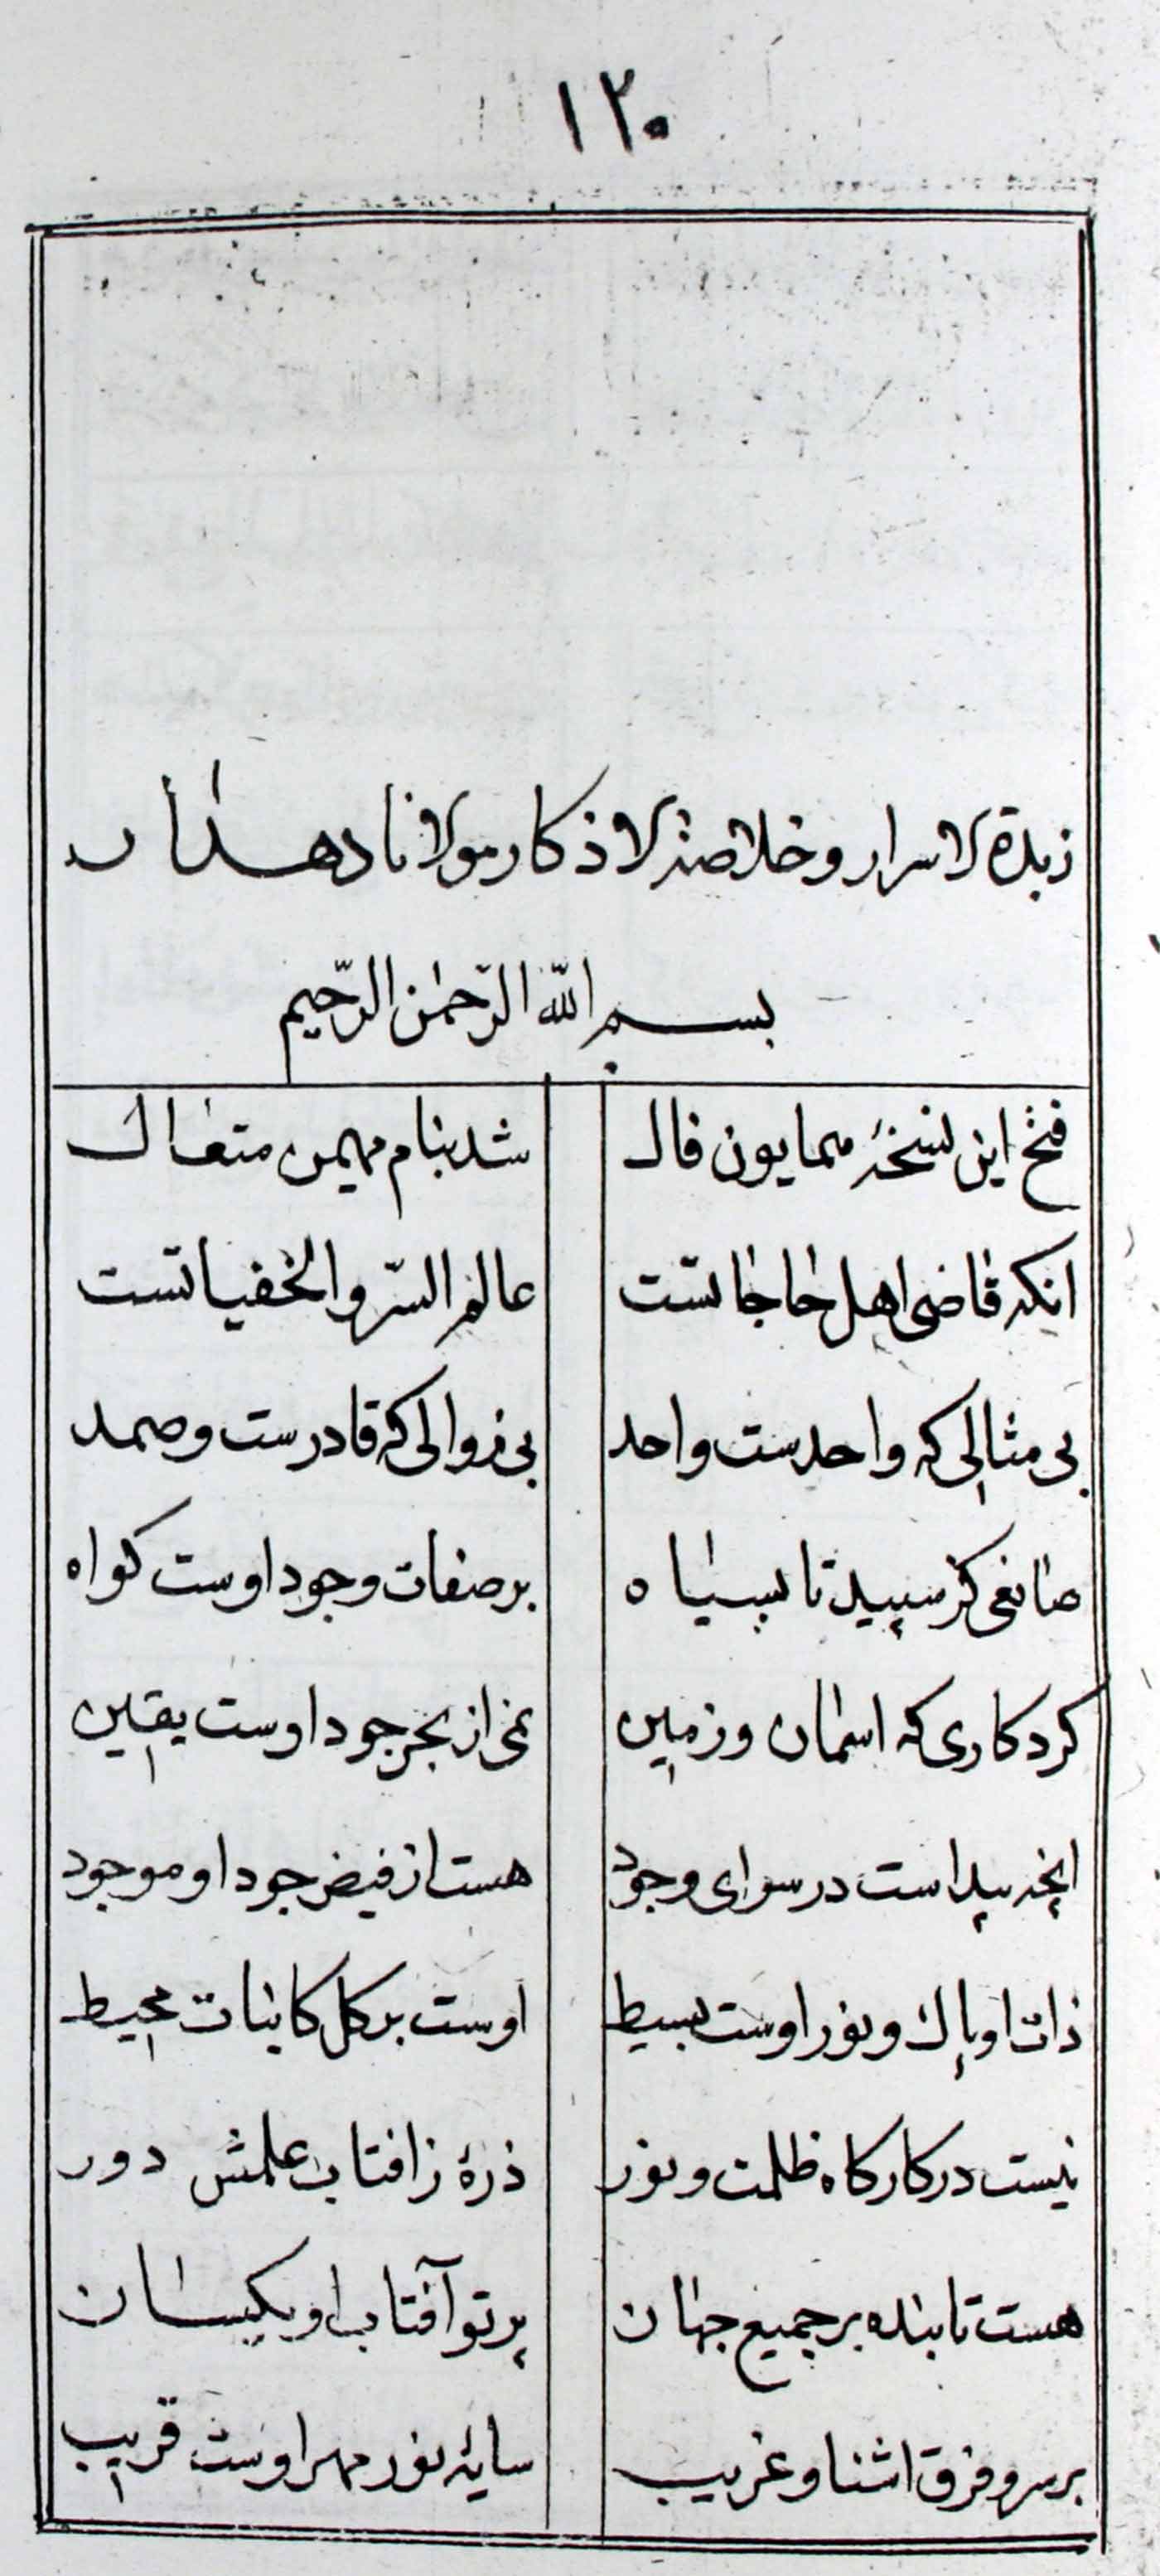 ۱۲۰
زبدة الاسرار وخلاصة الاذکار مولانا دهدار
بسم الله الرّحمٰن الرّحیم
فتح این نسخهٔ همایون فال شد بنام مهیمن متعال
انکه قاضی اهل حاجاتست عالم السّر والخفیاتست
بی مثالی که واحدست واحد بی زوالی که قادرست وصمد
صانعی کز سپید تا بسیاه بر صفات وجود اوست کواه
کردکاری که اسمان وزمین نمی از بحر جود اوست یقین
انچه پیداست در سرای وجود هست از فیض جود او موجود
ذات او پاک ونور اوست بسیط اوست بر کل کاینات محیط
نیست در کارکاه ظلمت ونور ذرهٔ ز افتاب علمش دور
هست تابنده بر جمیع جهان پرتو آفتاب او یکسان
بر سر وفرق اشنا وغریب سایهٔ نور مهر اوست قریب